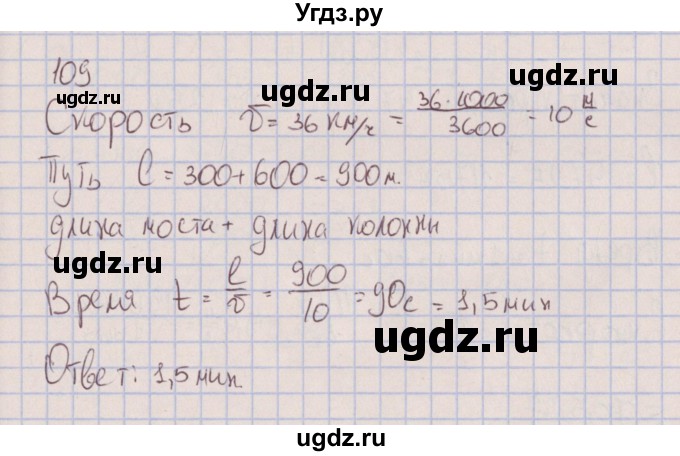 Угдз.ру
109
ugdz.ru ugdz.ru
Скорость υ = 36 км/ч = 36·1000/3600 = 10 м/с
Путь l = 300 + 600 = 900 м.
ugdz.ru
длина моста + длина колонны
ugdz.ru
Время t = l/υ = 900/10 = 90с = 1,5 мин
ugdz.ru
Ответ: 1,5 мин
ugdz.ru
ugdz.ru